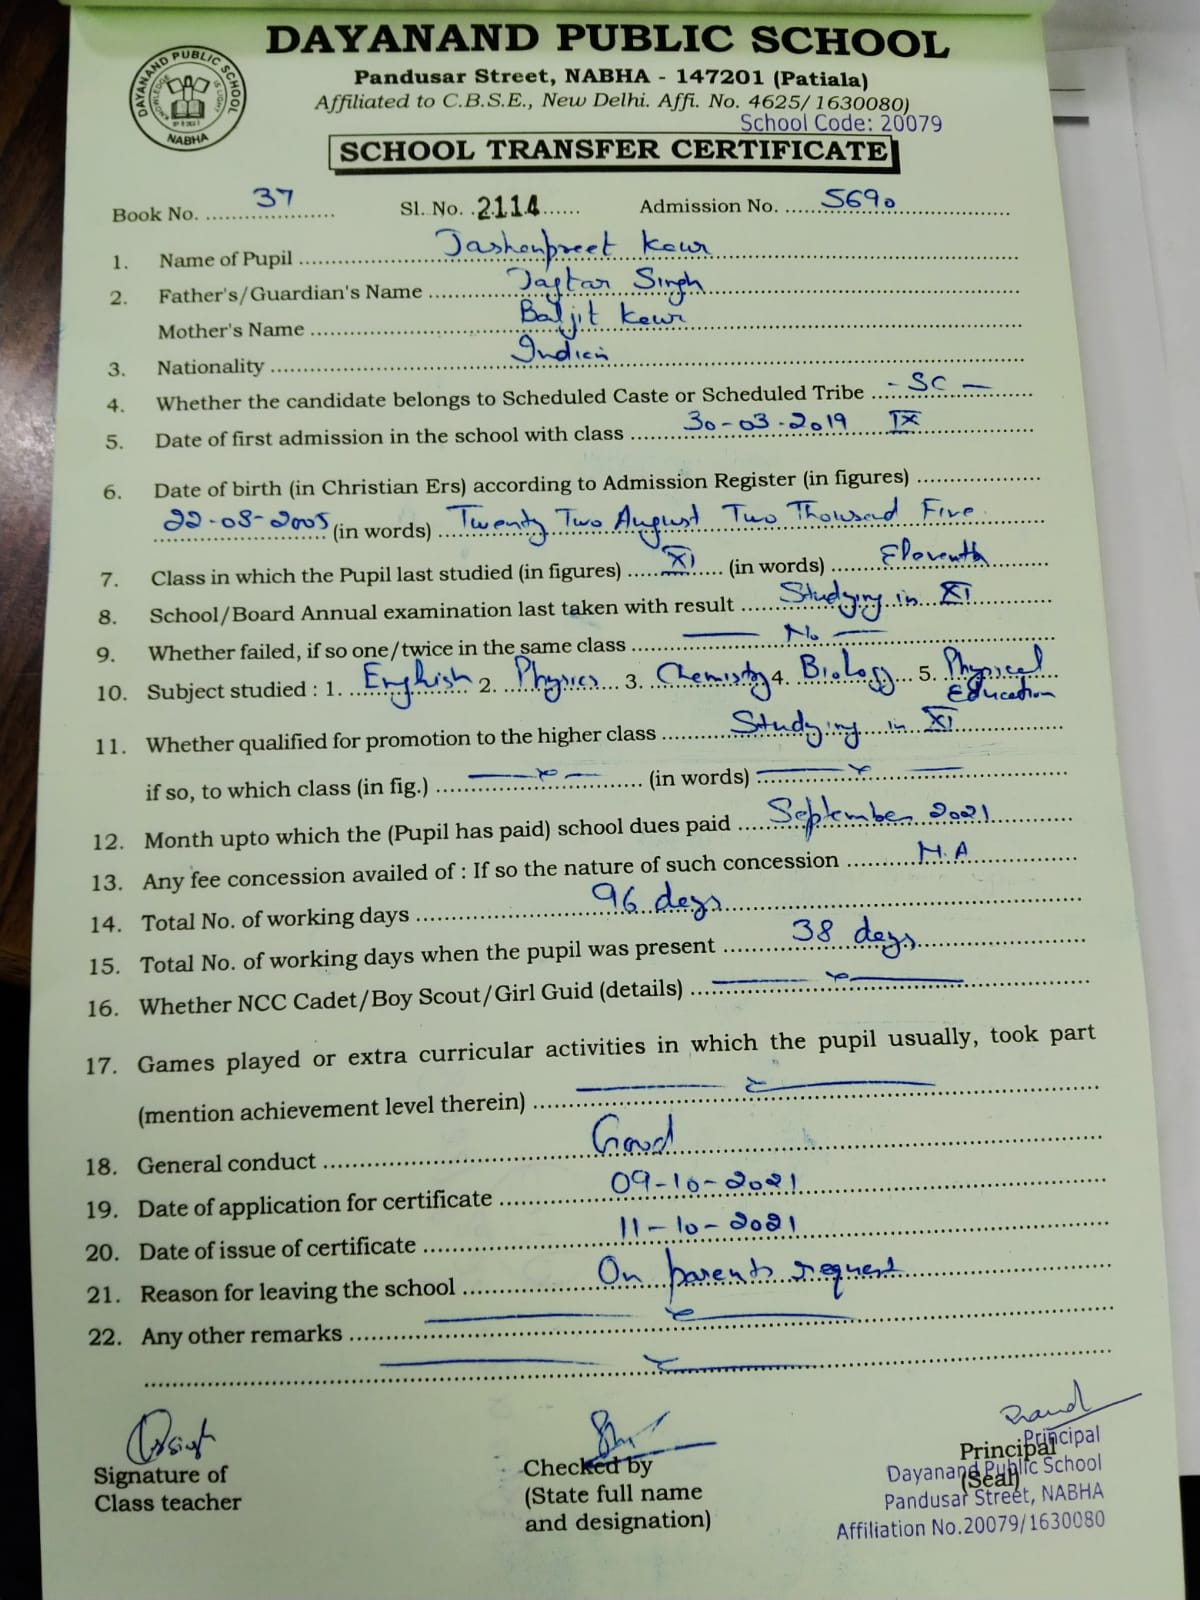 DAYANAND PUBLIC SCHOOL
Pandusar Street, NABHA - 147201 (Patiala)
Affiliated to C.B.S.E., New Delhi. Affi. No. 4625/ 1630080)
School Code: 20079
DAYANAND PUBLIC SCHOOL
KNOWLEDGE IS LIGHT
NABHA
SCHOOL TRANSFER CERTIFICATE
Book No. 37 Sl. No. 2114 Admission No. 5690
1. Name of Pupil Jashenpreet Kaur
2. Father's/Guardian's Name Jagtar Singh
Mother's Name Baljit Kaur
3. Nationality Indian
4. Whether the candidate belongs to Scheduled Caste or Scheduled Tribe - SC -
5. Date of first admission in the school with class 30-03-2019 IX
6. Date of birth (in Christian Ers) according to Admission Register (in figures)
22-08-2005 (in words) Twenty Two August Two Thousand Five
7. Class in which the Pupil last studied (in figures) XI (in words) Eleventh
8. School/Board Annual examination last taken with result Studying in XI
9. Whether failed, if so one/twice in the same class — No —
10. Subject studied : 1. English 2. Physics 3. Chemistry 4. Biology 5. Physical
Education
11. Whether qualified for promotion to the higher class Studying in XI
if so, to which class (in fig.) (in words)
12. Month upto which the (Pupil has paid) school dues paid September 2021
13. Any fee concession availed of : If so the nature of such concession N.A
14. Total No. of working days 96 days
15. Total No. of working days when the pupil was present 38 days
16. Whether NCC Cadet/Boy Scout/Girl Guid (details)
17. Games played or extra curricular activities in which the pupil usually, took part
(mention achievement level therein)
18. General conduct Good
19. Date of application for certificate 09-10-2021
20. Date of issue of certificate 11-10-2021
21. Reason for leaving the school On parents request
22. Any other remarks
Signature of
Class teacher
Checked by
(State full name
and designation)
Principal
(Seal)
Principal
Dayanand Public School
Pandusar Street, NABHA
Affiliation No.20079/1630080